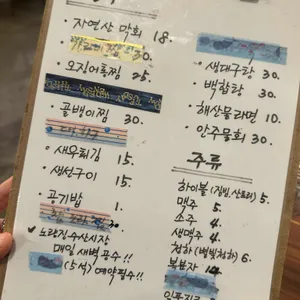 · 자연산 막회 18.
30.
오징어톡찜 25.
· 골뱅이찜 30.
· 새우튀김 15.
· 생선구이 15.
· 공기밥 1.
✓ 노량진수산시장
매일 새벽 공수!!
(5석) 예약필수!!
· 생대구탕 30.
· 백합탕 30.
· 해산물라면 10.
· 안주물회 30.
주류
하이볼 (짐빔, 산토리) 5.
맥주 5.
소주 4.
생맥주 4.
청하 (별빛청하) 6.
복분자